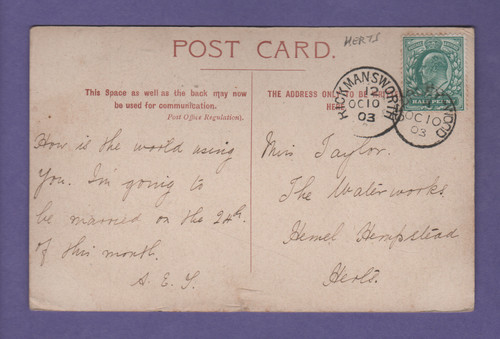 HERTS
POST CARD.
This Space as well as the back may now
be used for communication.
(Post Office Regulation).
THE ADDRESS ONLY TO BE
HERE
RICKMANSWORTH
12
OC 10
03
OC 10
03
HALFPENNY
How is the world using
you. I'm going to
be married on the 24th.
of this month.
A. E. T.
Miss Taylor.
The Waterworks.
Hemel Hempstead
Herts.